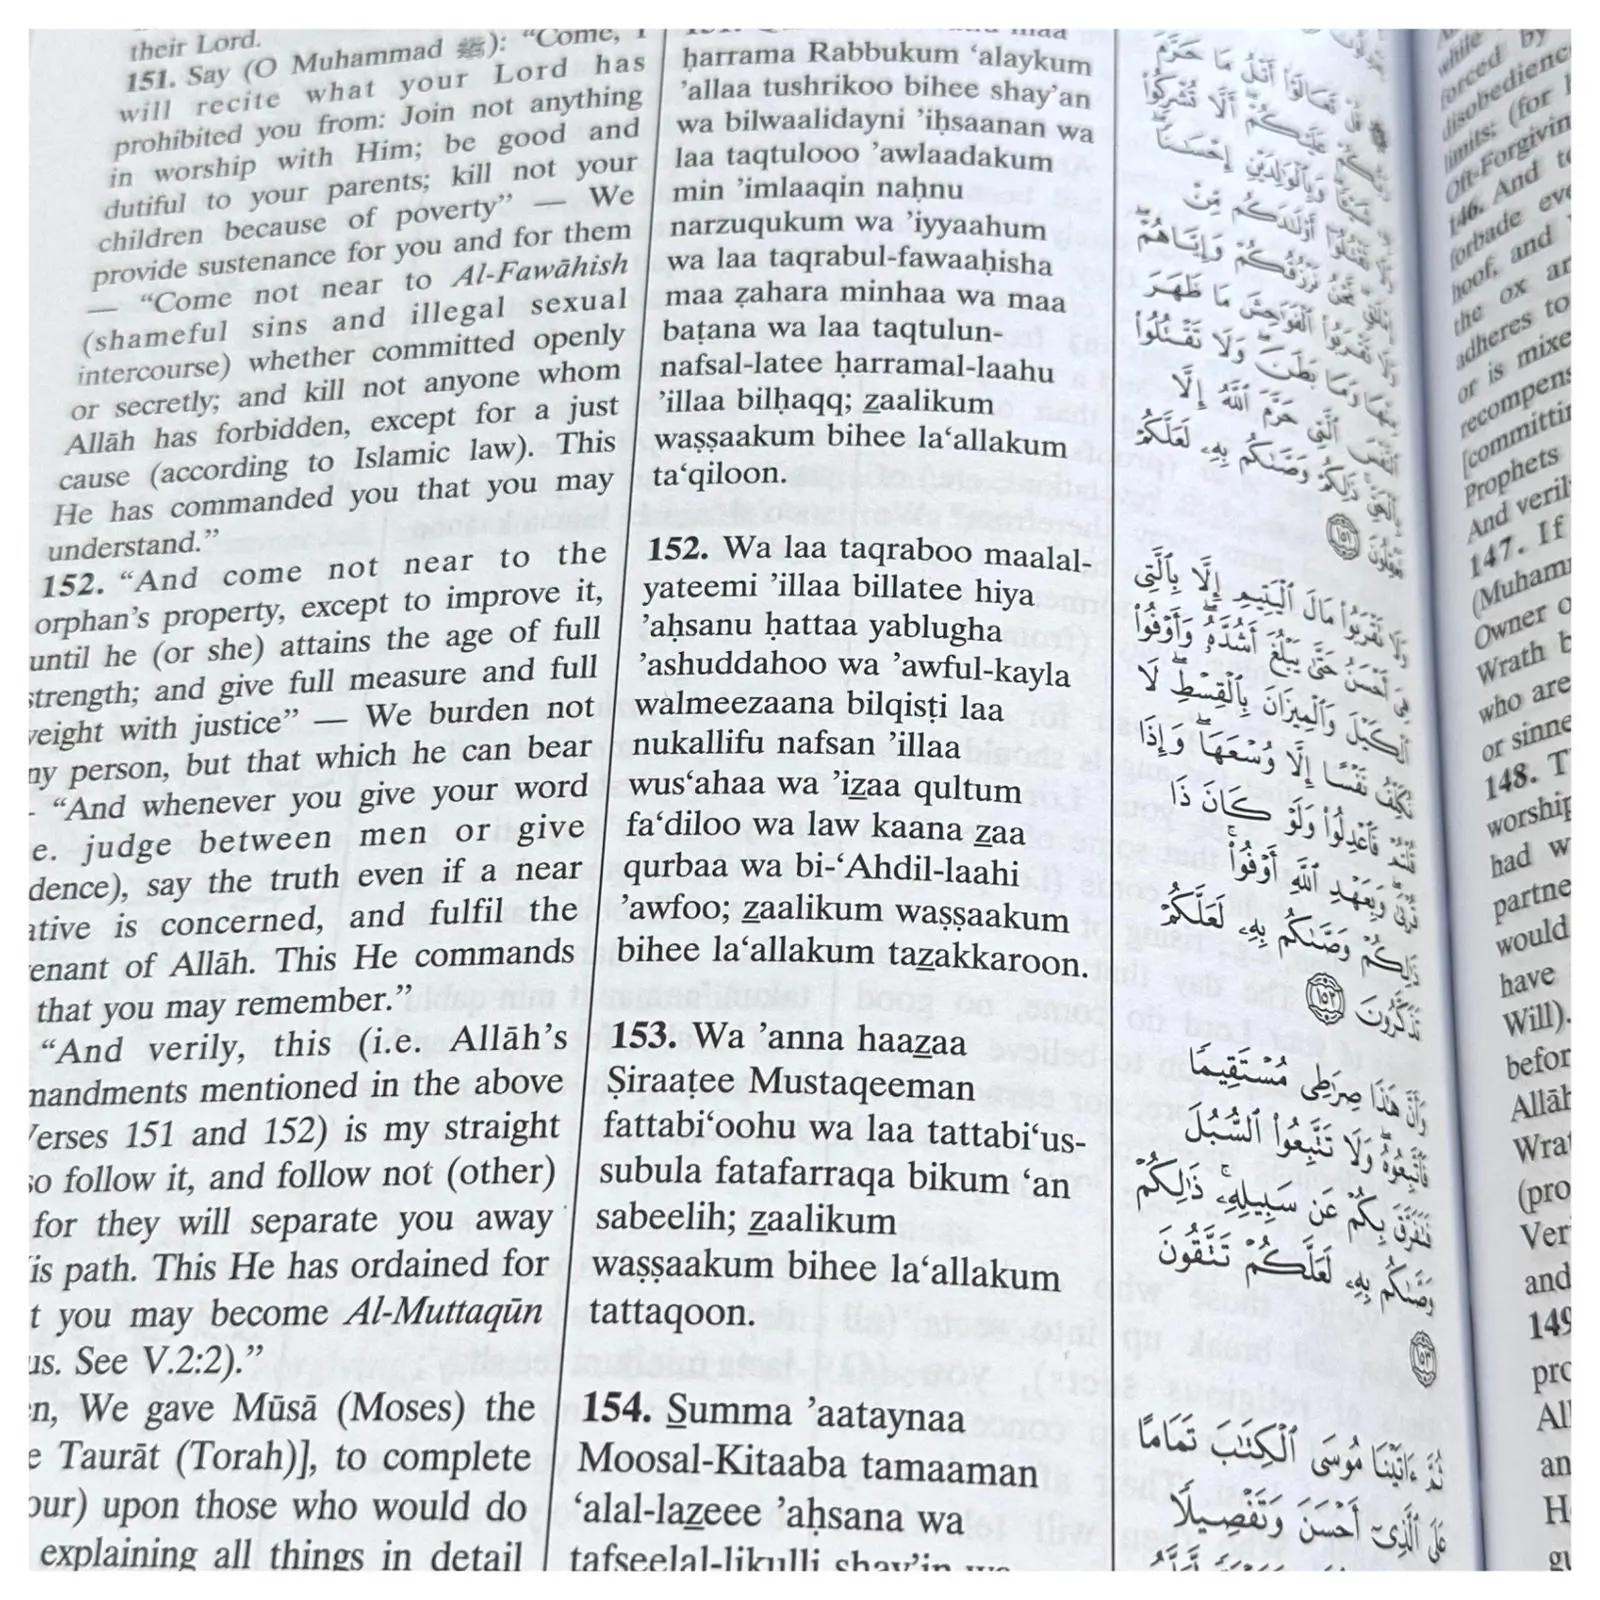 their Lord.
151. Say (O Muhammad ﷺ): "Come, I
will recite what your Lord has
prohibited you from: Join not anything
in worship with Him; be good and
dutiful to your parents; kill not your
children because of poverty" — We
provide sustenance for you and for them
— "Come not near to Al-Fawāhish
(shameful sins and illegal sexual
intercourse) whether committed openly
or secretly; and kill not anyone whom
Allāh has forbidden, except for a just
cause (according to Islamic law). This
He has commanded you that you may
understand."
152. "And come not near to the
orphan's property, except to improve it,
until he (or she) attains the age of full
strength; and give full measure and full
weight with justice" — We burden not
ny person, but that which he can bear
- "And whenever you give your word
e. judge between men or give
dence), say the truth even if a near
ative is concerned, and fulfil the
enant of Allāh. This He commands
that you may remember."
"And verily, this (i.e. Allāh's
mandments mentioned in the above
Verses 151 and 152) is my straight
so follow it, and follow not (other)
for they will separate you away
is path. This He has ordained for
t you may become Al-Muttaqūn
us. See V.2:2)."
n, We gave Mūsā (Moses) the
e Taurāt (Torah)], to complete
our) upon those who would do
explaining all things in detail
maa
ḥarrama Rabbukum ‘alaykum
’allaa tushrikoo bihee shay’an
wa bilwaalidayni ’iḥsaanan wa
laa taqtulooo ’awlaadakum
min ’imlaaqin naḥnu
narzuqukum wa ’iyyaahum
wa laa taqrabul-fawaaḥisha
maa ẓahara minhaa wa maa
baṭana wa laa taqtulun-
nafsal-latee ḥarramal-laahu
’illaa bilḥaqq; z̲aalikum
waṣṣaakum bihee la‘allakum
ta‘qiloon.
152. Wa laa taqraboo maalal-
yateemi ’illaa billatee hiya
’aḥsanu ḥattaa yablugha
’ashuddahoo wa ’awful-kayla
walmeezaana bilqisṭi laa
nukallifu nafsan ’illaa
wus‘ahaa wa ’iz̲aa qultum
fa‘diloo wa law kaana z̲aa
qurbaa wa bi-‘Ahdil-laahi
’awfoo; z̲aalikum waṣṣaakum
bihee la‘allakum taz̲akkaroon.
153. Wa ’anna haaz̲aa
Ṣiraaṭee Mustaqeeman
fattabi‘oohu wa laa tattabi‘us-
subula fatafarraqa bikum ‘an
sabeelih; z̲aalikum
waṣṣaakum bihee la‘allakum
tattaqoon.
154. S̲umma ’aataynaa
Moosal-Kitaaba tamaaman
‘alal-laz̲eee ’aḥsana wa
tafseelal-likulli shay’in wa
قُلْ تَعَالَوْا۟ أَتْلُ مَا حَرَّمَ
رَبُّكُمْ عَلَيْكُمْ أَلَّا تُشْرِكُوا۟
وَبِٱلْوَٰلِدَيْنِ إِحْسَـٰنًا
وَلَا تَقْتُلُوٓا۟ أَوْلَـٰدَكُم مِّنْ
نَّحْنُ نَرْزُقُكُمْ وَإِيَّاهُمْ
وَلَا تَقْرَبُوا۟ ٱلْفَوَٰحِشَ مَا ظَهَرَ
مِنْهَا وَمَا بَطَنَ وَلَا تَقْتُلُوا۟
ٱلنَّفْسَ ٱلَّتِى حَرَّمَ ٱللَّهُ إِلَّا
بِٱلْحَقِّ ذَٰلِكُمْ وَصَّىٰكُم بِهِۦ لَعَلَّكُمْ
تَعْقِلُونَ ١٥١
وَلَا تَقْرَبُوا۟ مَالَ ٱلْيَتِيمِ إِلَّا بِٱلَّتِى
هِىَ أَحْسَنُ حَتَّىٰ يَبْلُغَ أَشُدَّهُۥ وَأَوْفُوا۟
ٱلْكَيْلَ وَٱلْمِيزَانَ بِٱلْقِسْطِ لَا
نُكَلِّفُ نَفْسًا إِلَّا وُسْعَهَا وَإِذَا
قُلْتُمْ فَٱعْدِلُوا۟ وَلَوْ كَانَ ذَا
قُرْبَىٰ وَبِعَهْدِ ٱللَّهِ أَوْفُوا۟
ذَٰلِكُمْ وَصَّىٰكُم بِهِۦ لَعَلَّكُمْ
تَذَكَّرُونَ ١٥٢
وَأَنَّ هَـٰذَا صِرَٰطِى مُسْتَقِيمًا
فَٱتَّبِعُوهُ وَلَا تَتَّبِعُوا۟ ٱلسُّبُلَ
فَتَفَرَّقَ بِكُمْ عَن سَبِيلِهِۦ ذَٰلِكُمْ
وَصَّىٰكُم بِهِۦ لَعَلَّكُمْ تَتَّقُونَ
١٥٣
ثُمَّ ءَاتَيْنَا مُوسَى ٱلْكِتَـٰبَ تَمَامًا
عَلَى ٱلَّذِىٓ أَحْسَنَ وَتَفْصِيلًا
while
forced by
disobedienc
limits; (for
Oft-Forgivin
146. And to
forbade eve
hoof, and
the ox an
adheres to
or is mixe
recompens
[committin
Prophets
And veril
147. If
(Muhamm
Owner o
Wrath b
who are
or sinne
148. T
worship
had w
partne
would
have
Will).
befor
Allāh
Wrat
(pro
Ver
and
149
pro
Al
an
H
gu